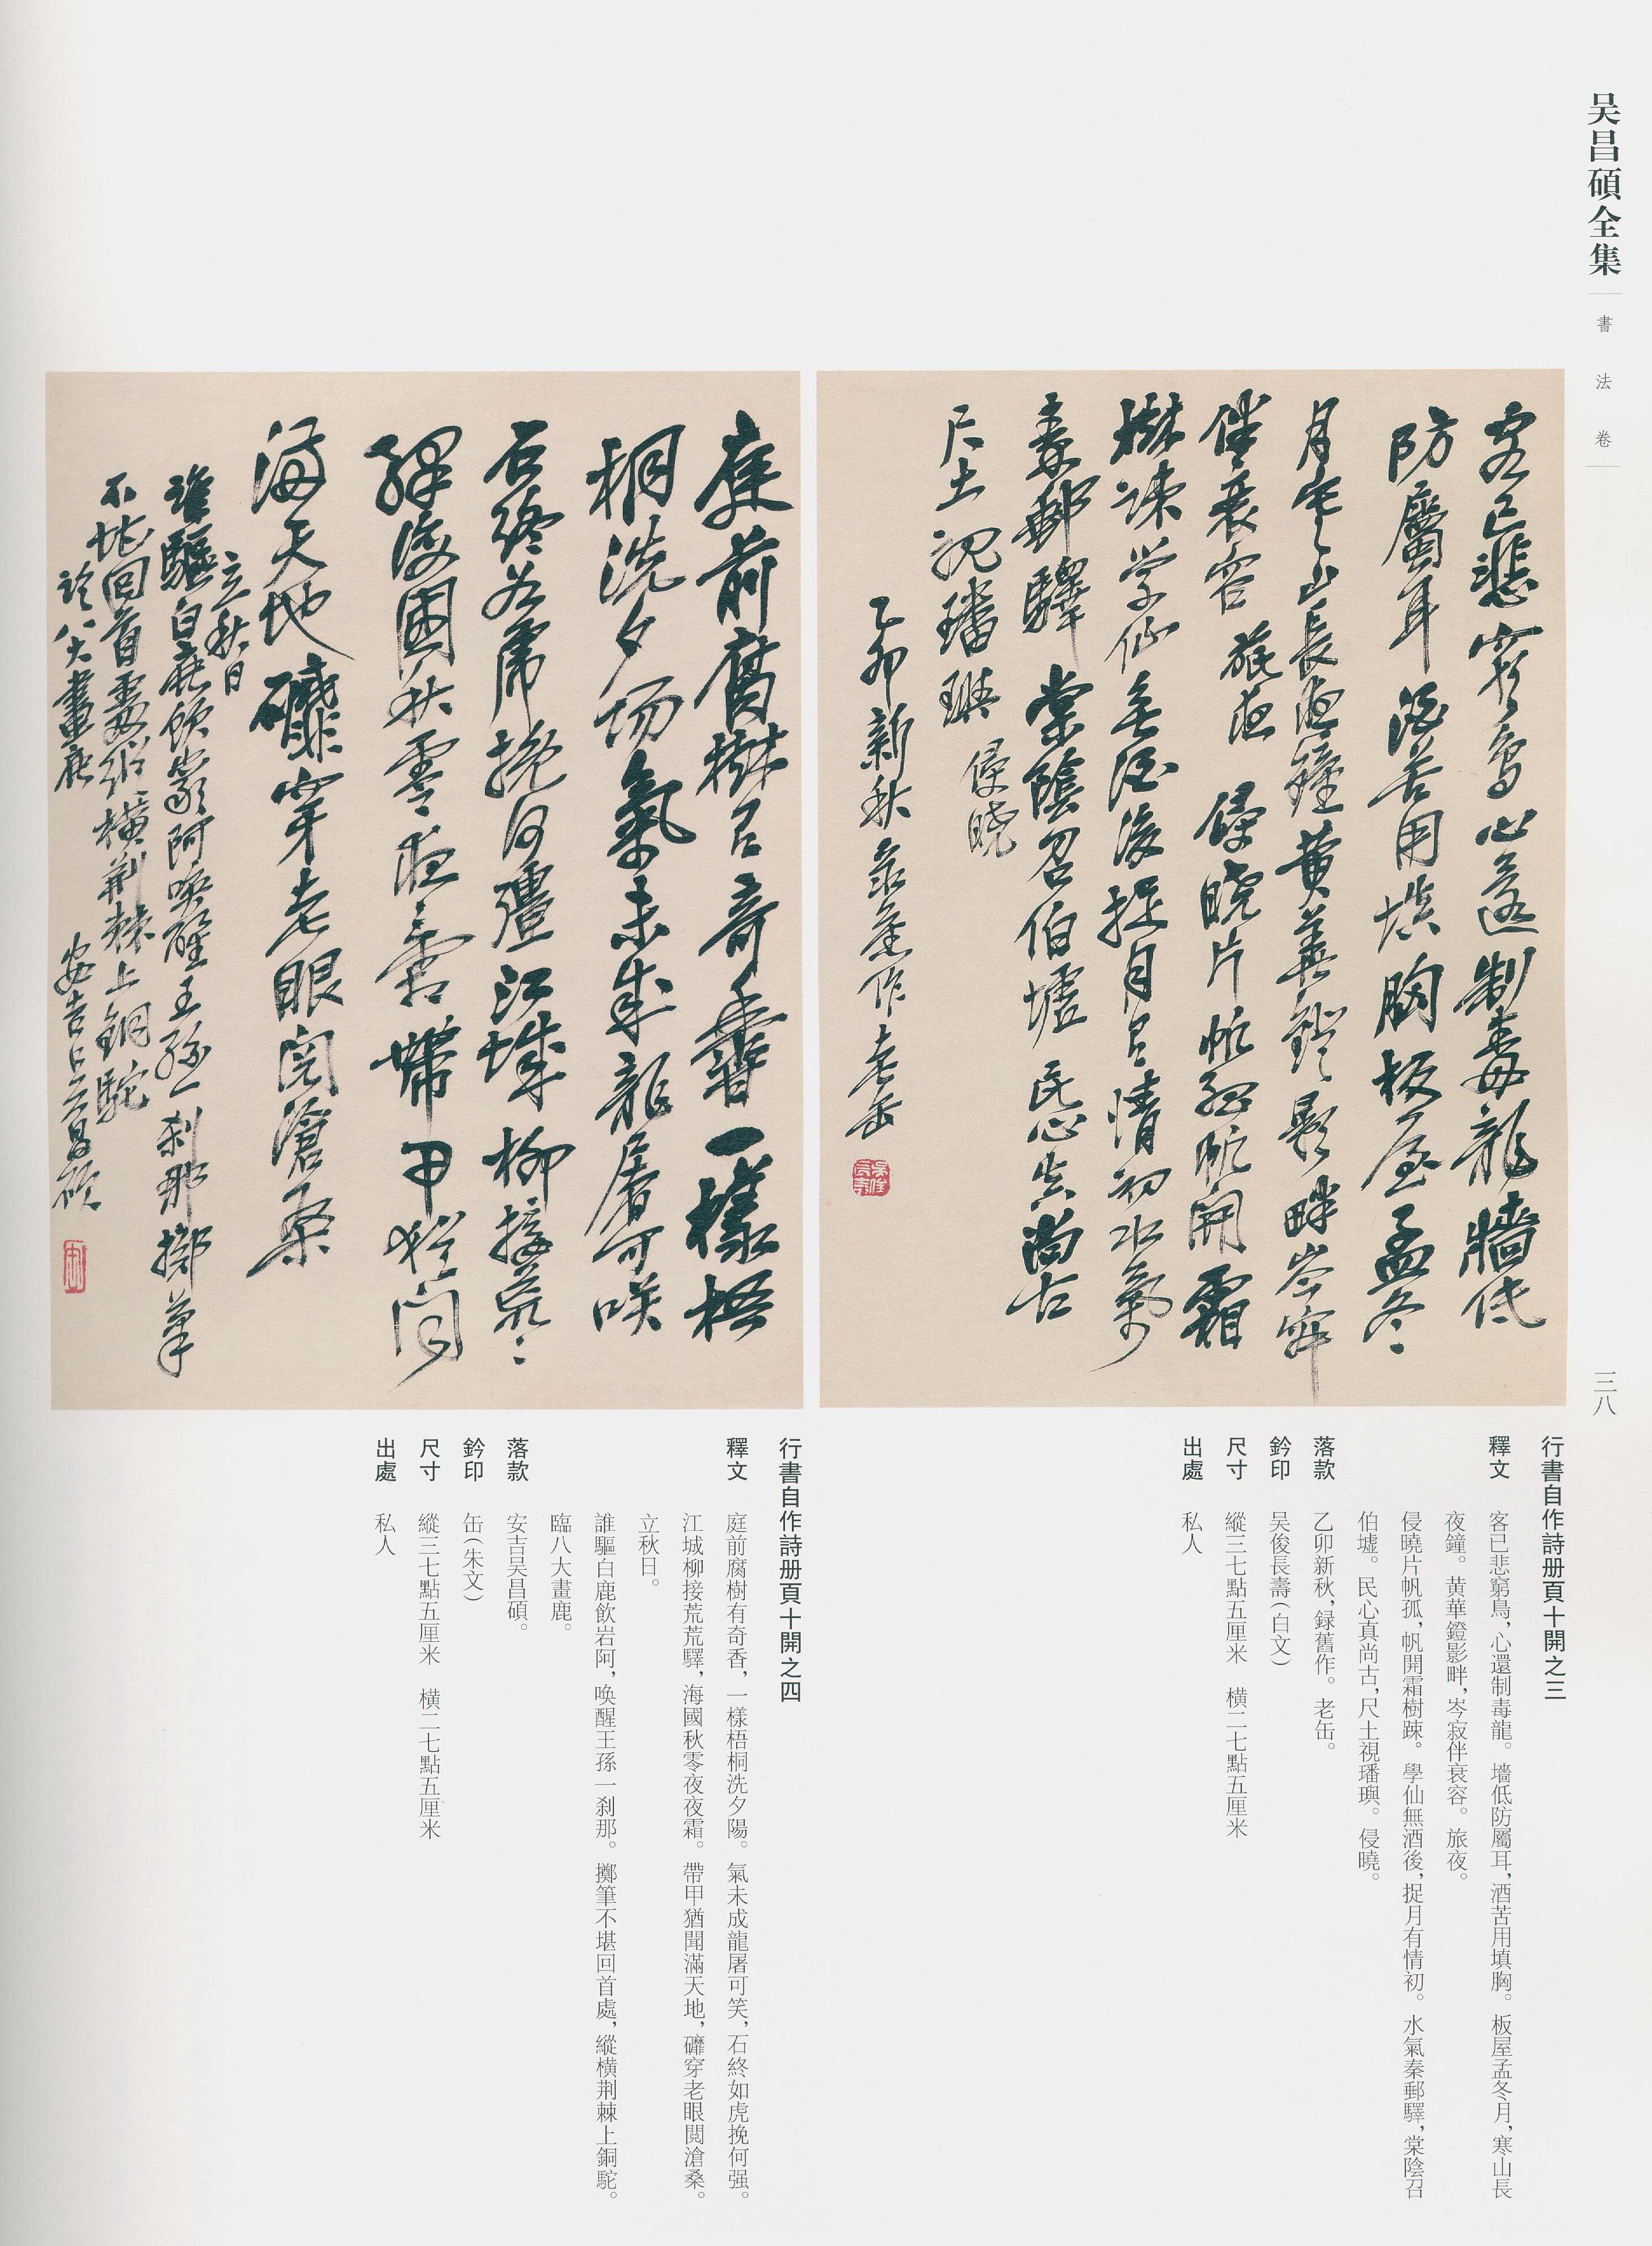 吴昌碩全集
書法卷
三八
客已悲窮鳥心還制毒龍牆低
防屬耳酒苦用填胸板屋孟冬
月寒山長夜鐘黄華鐙影畔岑寂
伴衰容旅夜侵曉片帆孤帆開霜
樹踈学仙無酒後捉月有情初水氣
秦郵驛棠陰召伯墟民心真尚古
尺土視璠璵侵曉
乙卯新秋录舊作老缶
庭前腐樹有奇香一樣梧
桐洗夕陽氣未成龍屠可笑
石終如虎挽何彊江城柳接荒荒
驛海國秋零夜夜霜帶甲猶聞
滿天地礳穿老眼閲滄桑
立秋日
誰驅白鹿飲岩阿喚醒王孫一刹那擲筆
不堪回首處縱横荆棘上銅駝
臨八大畫鹿
安吉吴昌碩
行書自作詩册頁十開之三
釋文 客已悲窮鳥，心還制毒龍。墻低防屬耳，酒苦用填胸。板屋孟冬月，寒山長
夜鐘。黄華鐙影畔，岑寂伴衰容。旅夜。
侵曉片帆孤，帆開霜樹踈。學仙無酒後，捉月有情初。水氣秦郵驛，棠陰召
伯墟。民心真尚古，尺土視璠璵。侵曉。
落款 乙卯新秋，録舊作。老缶。
鈐印 吴俊長壽（白文）
尺寸 縱三七點五厘米 横二七點五厘米
出處 私人
行書自作詩册頁十開之四
釋文 庭前腐樹有奇香，一樣梧桐洗夕陽。氣未成龍屠可笑，石終如虎挽何强。
江城柳接荒荒驛，海國秋零夜夜霜。帶甲猶聞滿天地，礳穿老眼閲滄桑。
立秋日。
誰驅白鹿飲岩阿，唤醒王孫一刹那。擲筆不堪回首處，縱横荆棘上銅駝。
臨八大畫鹿。
落款 安吉吴昌碩。
鈐印 缶（朱文）
尺寸 縱三七點五厘米 横二七點五厘米
出處 私人